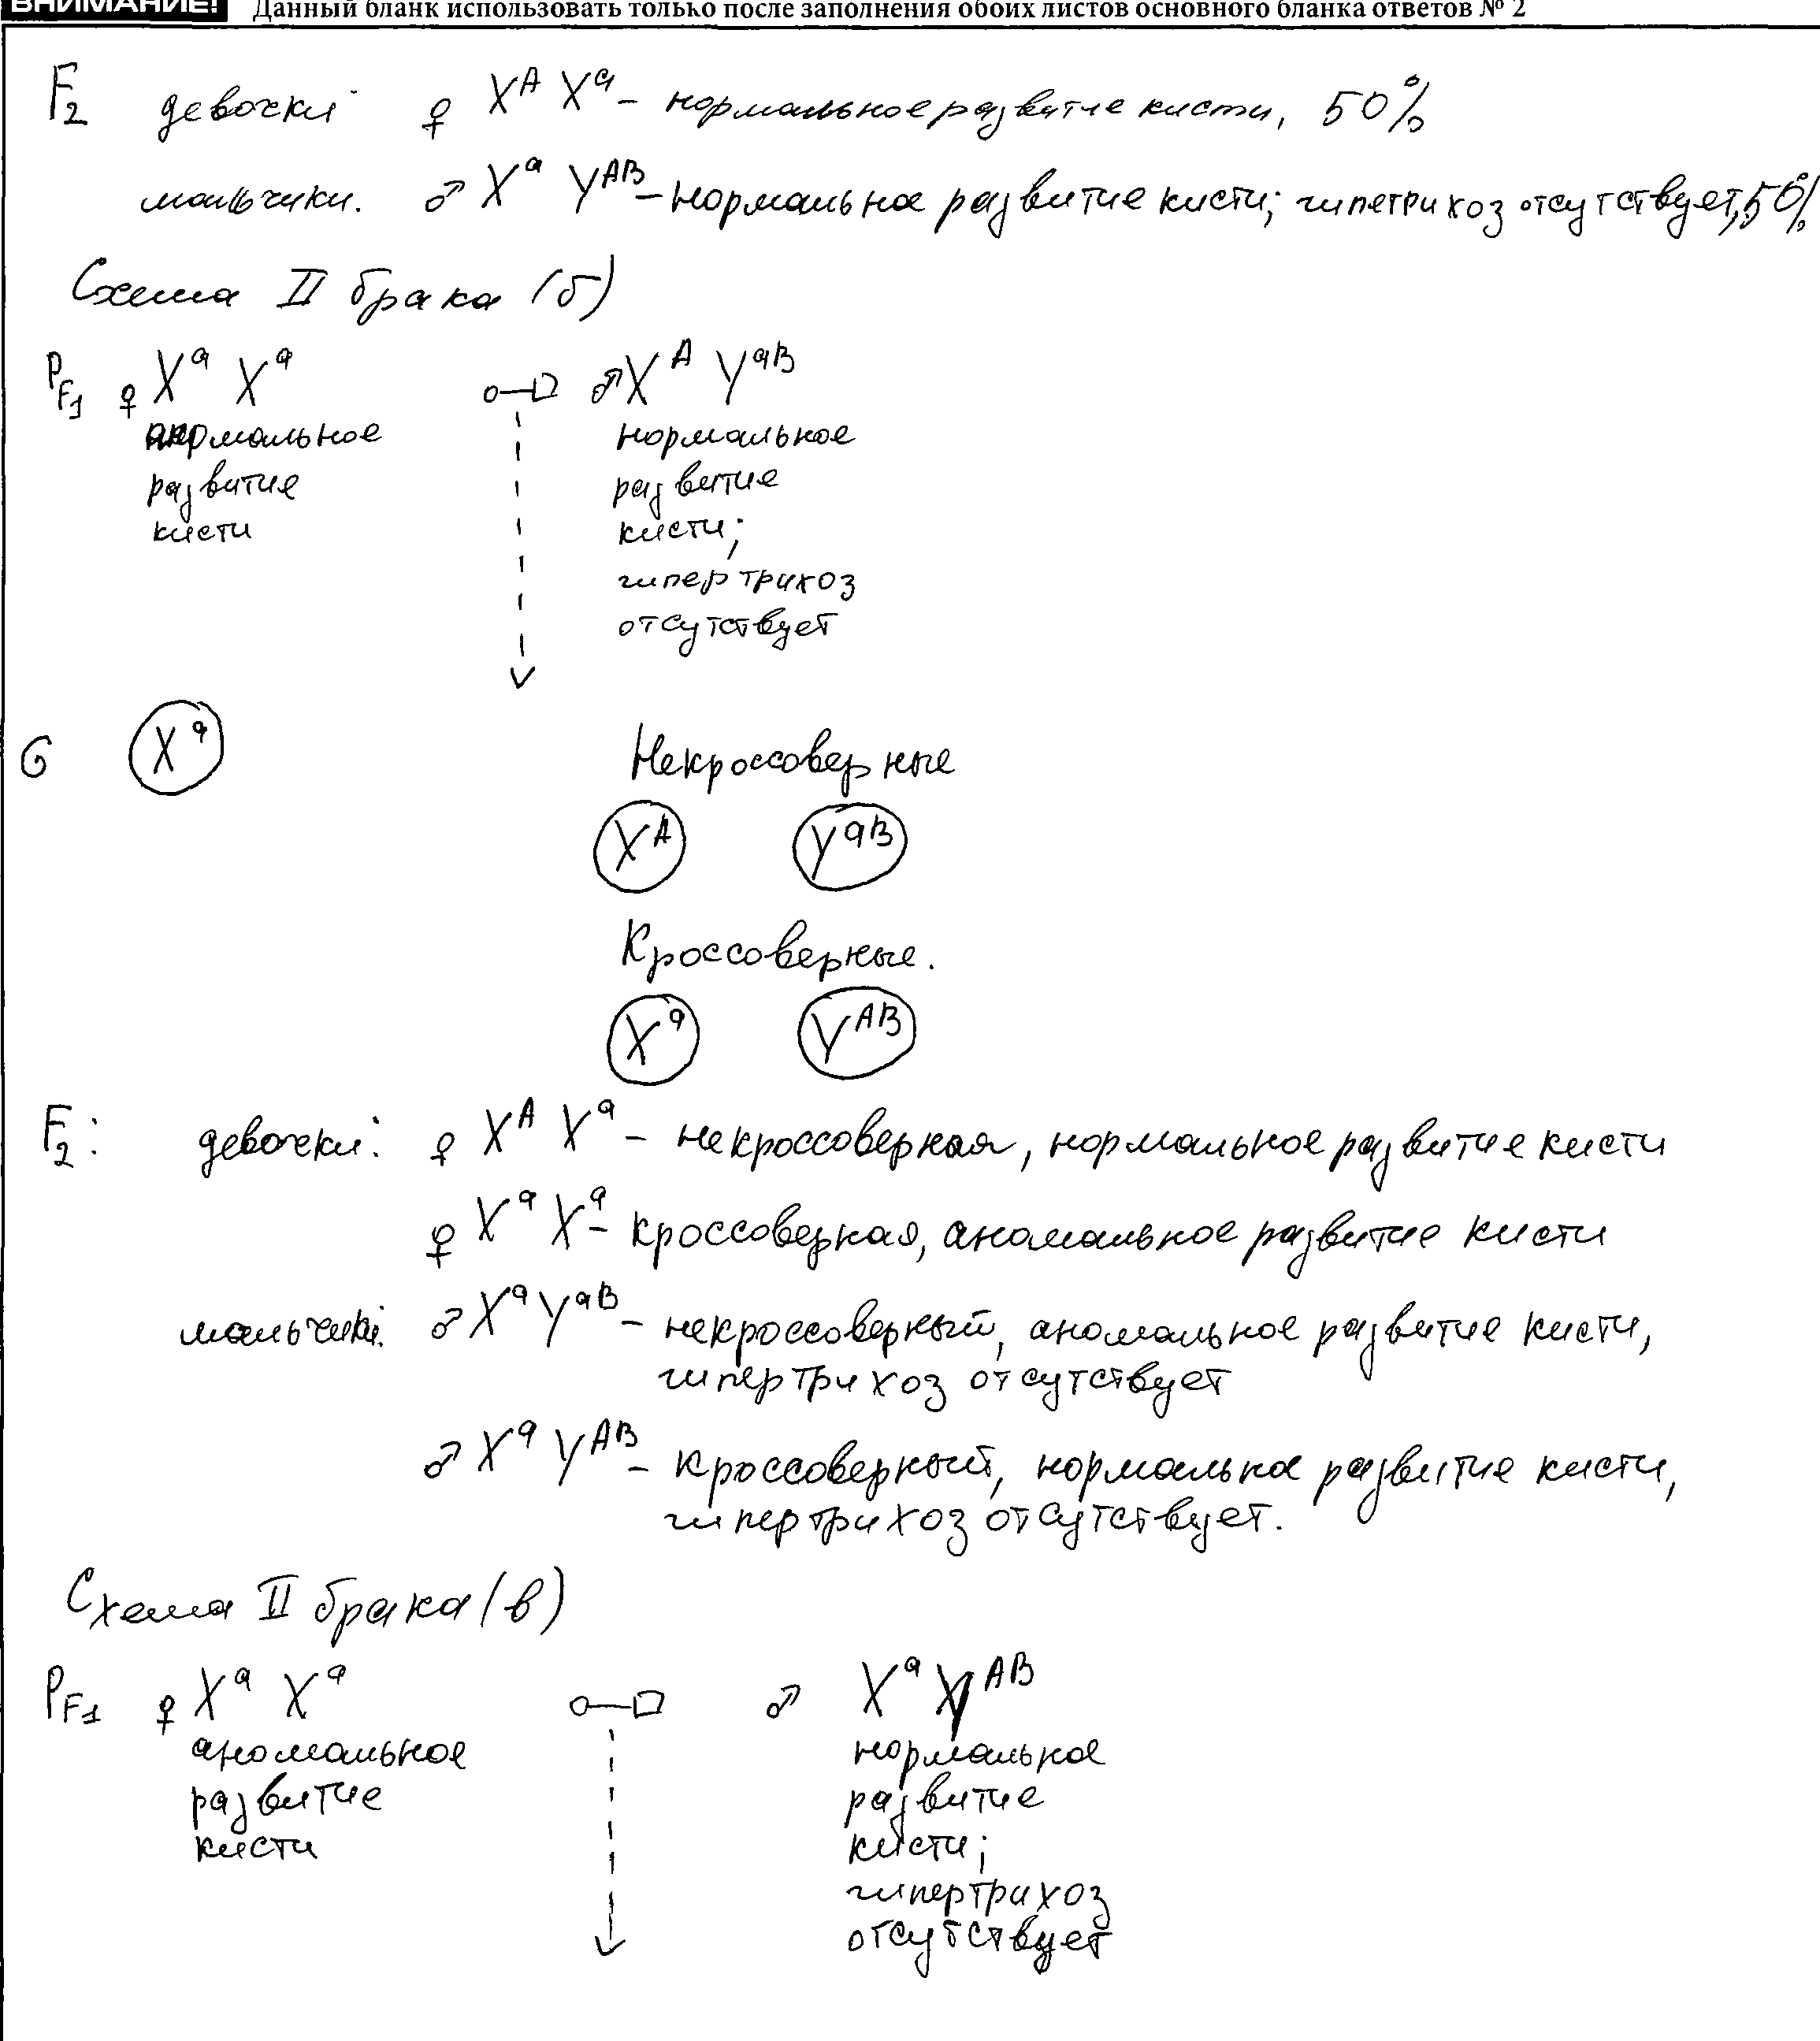 ВНИМАНИЕ! Данный бланк использовать только после заполнения обоих листов основного бланка ответов № 2
F2 девочки ♀ X^A X^a – нормальное развитие кисти, 50%
мальчики. ♂ X^a Y^AB – нормальное развитие кисти; гипетрихоз отсутствует, 50%
Схема II брака (б)
P F1 ♀ X^a X^a ♂ X^A Y^aB
анормальное нормальное
развитие развитие
кисти кисти;
гипертрихоз
отсутствует
G X^a Некроссоверные
X^A Y^aB
Кроссоверные.
X^a Y^AB
F2: девочки: ♀ X^A X^a – некроссоверная, нормальное развитие кисти
♀ X^a X^a – кроссоверная, аномальное развитие кисти
мальчики: ♂ X^a Y^aB – некроссоверный, аномальное развитие кисти,
гипертрихоз отсутствует
♂ X^a Y^AB – кроссоверный, нормальное развитие кисти,
гипертрихоз отсутствует.
Схема II брака (в)
P F1 ♀ X^a X^a ♂ X^a Y^AB
аномальное нормальное
развитие развитие
кисти кисти;
гипертрихоз
отсутствует